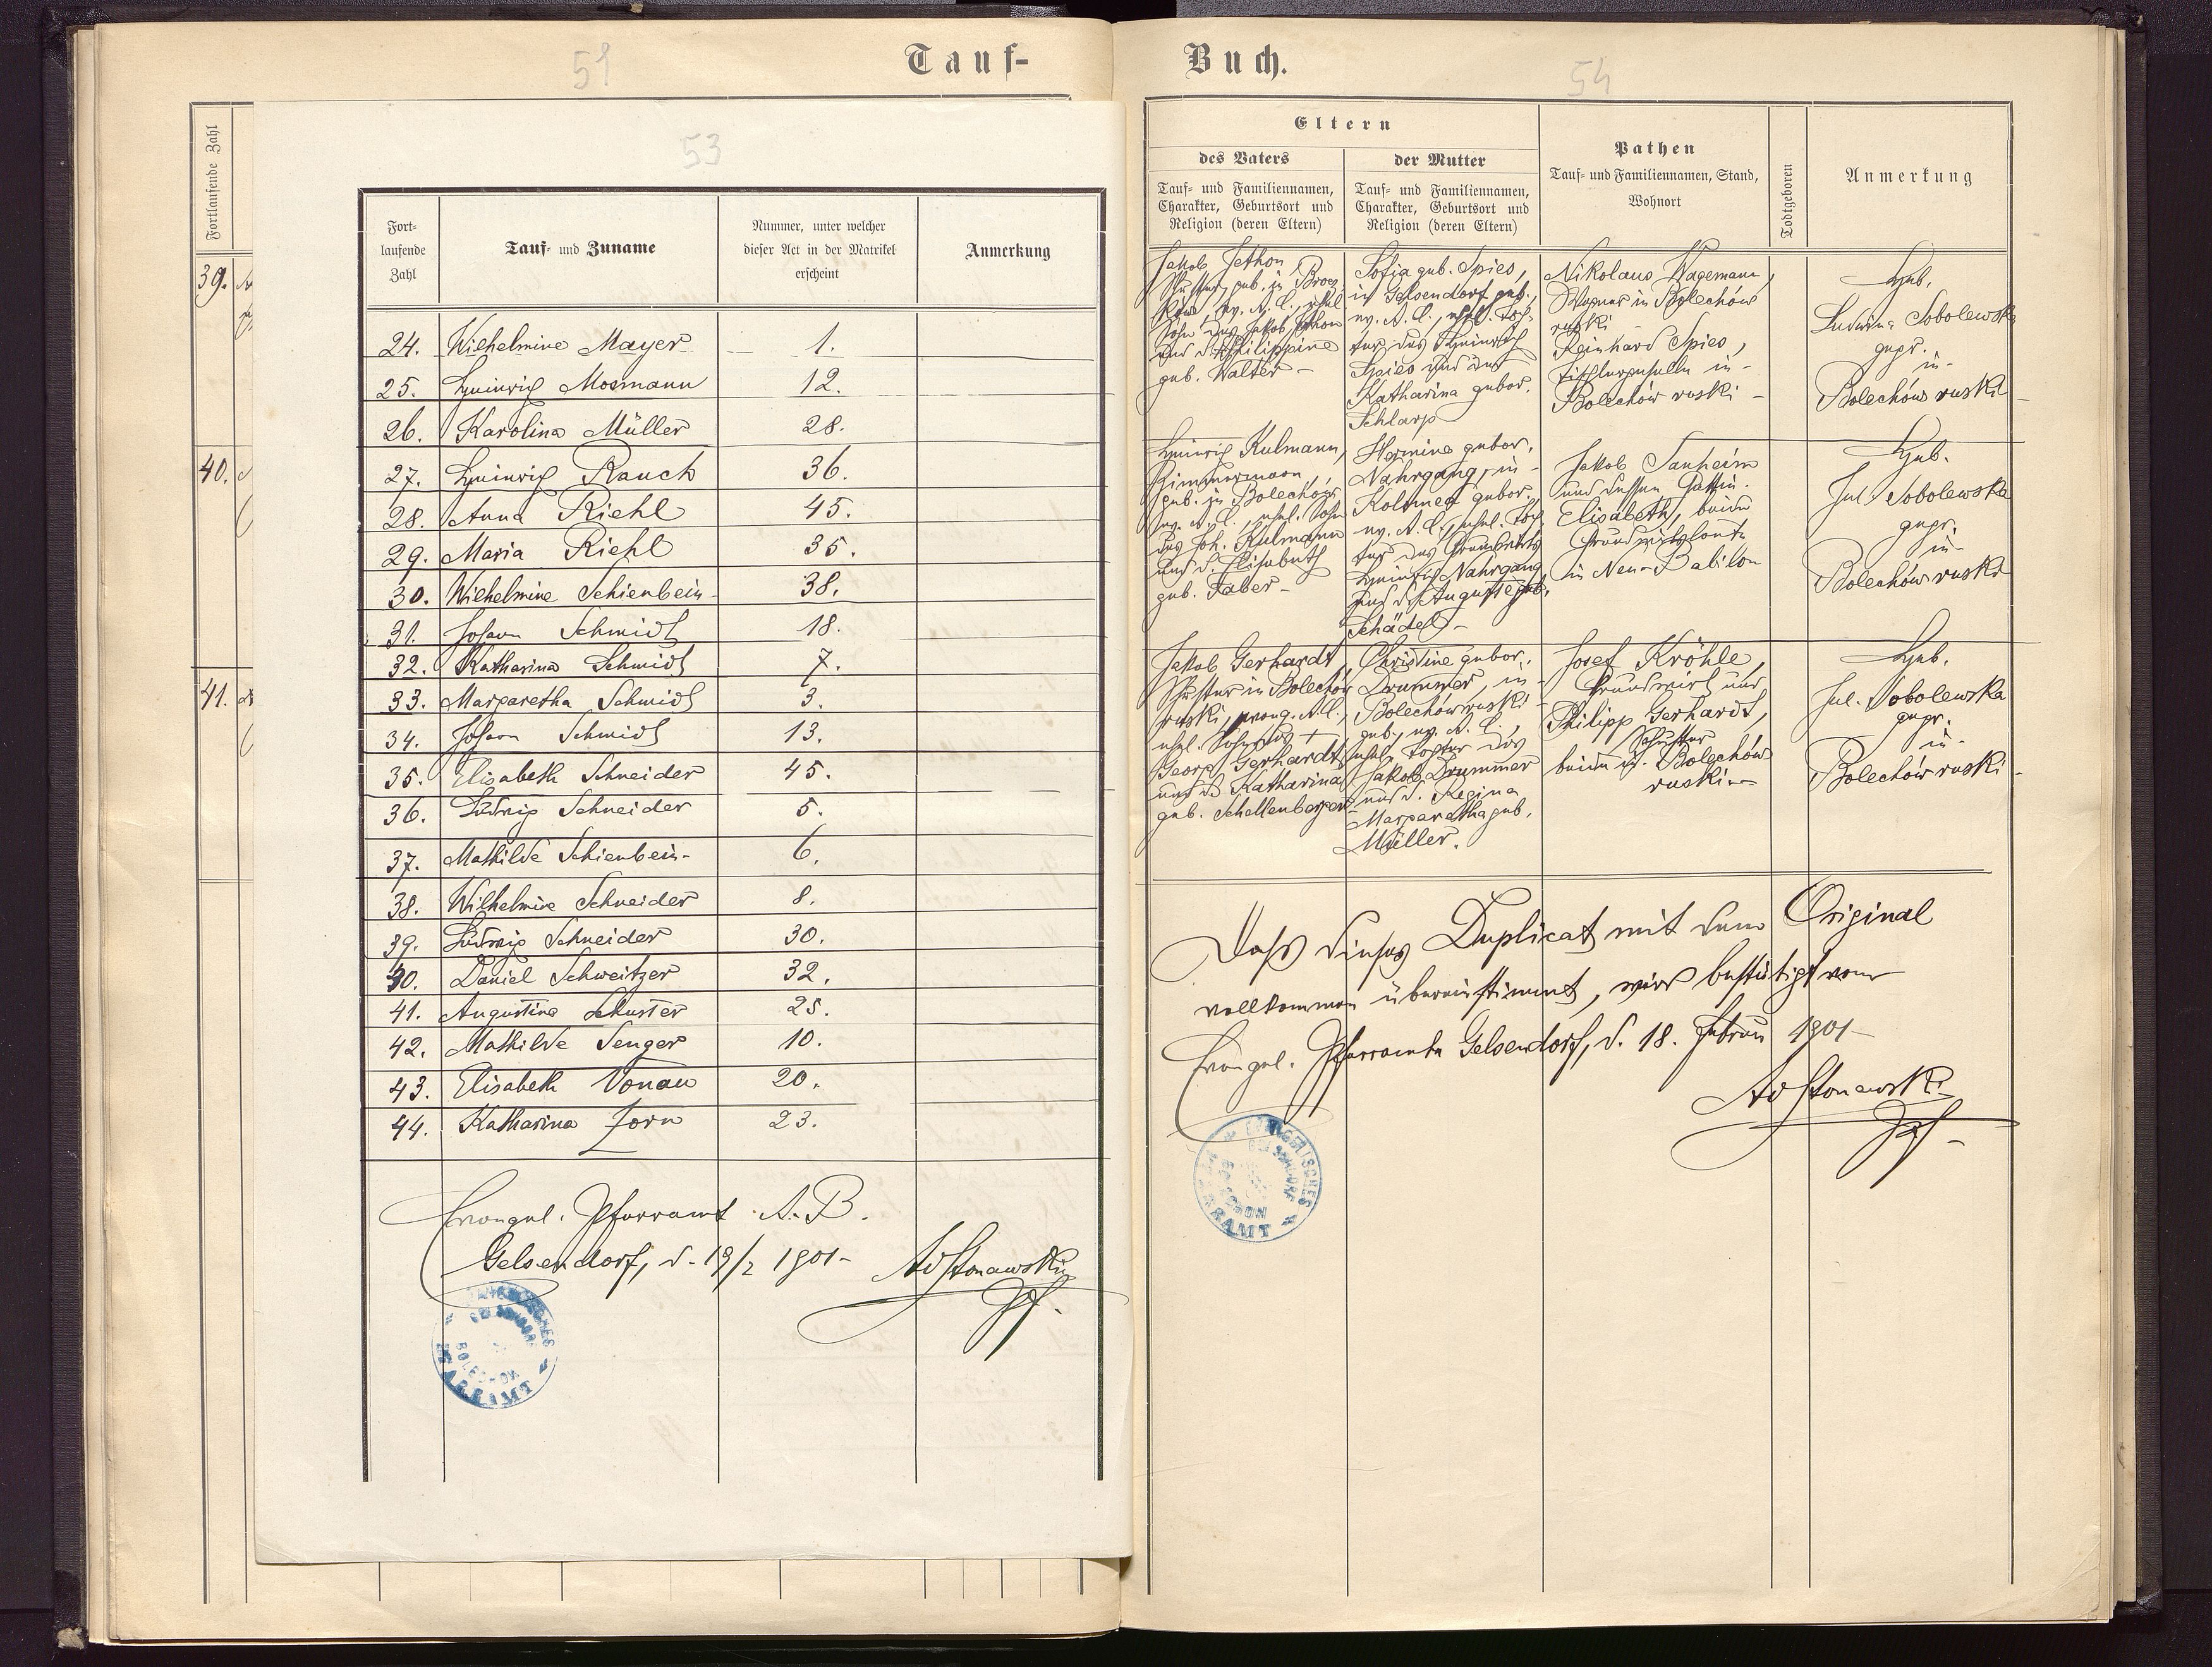 51
Tauf-
Fortlaufende Zahl
39.
40.
41.
53
Fort-
laufende
Zahl
Tauf- und Zuname
Nummer, unter welcher
dieser Act in der Matrikel
erscheint
Anmerkung
24. Wilhelmine Mayer 1.
25. Heinrich Mosmann 12.
26. Karolina Müller 28.
27. Heinrich Rauch 36.
28. Anna Riehl 45.
29. Maria Riehl 35.
30. Wilhelmine Schienbein- 38.
31. Johann Schmidt 18.
32. Katharina Schmidt 7.
33. Margaretha Schmidt 3.
34. Johann Schmidt 13.
35. Elisabeth Schneider 45.
36. Ludwig Schneider 5.
37. Mathilde Schienbein- 6.
38. Wilhelmine Schneider 8.
39. Ludwig Schneider 30.
40. Daniel Schweitzer 32.
41. Augustina Schuster 25.
42. Mathilde Senger 10.
43. Elisabeth Vonau 20.
44. Katharina Zorn 23.
Evangel. Pfarramt A. B.
Gelsendorf, d. 19/2 1901-
Buch.
54
Eltern
des Vaters
Tauf- und Familiennamen,
Charakter, Geburtsort und
Religion (deren Eltern)
der Mutter
Tauf- und Familiennamen,
Charakter, Geburtsort und
Religion (deren Eltern)
Pathen
Tauf- und Familiennamen, Stand,
Wohnort
Todtgeboren
Anmerkung
Jakob Jethon,
Schuster, geb. in
ev. A. C., ehel.
Sohn des Jakob Jethon
und d. Philippine
geb. Walter -
Sofia geb. Spies,
in Gelsendorf geb.,
ev. A. C., ehel. Toch-
ter des Heinrich
Spies und der
Katharina gebor.
Schlarp
Nikolaus Wagemann,
Wagner in Bolechów
ruski -
Reinhard Spies,
Tischlergeselle in -
Bolechów ruski -
Heb.
Ludwina Sobolewska
gepr.
in-
Bolechów ruski -
Heinrich Kulmann,
Zimmermann,
geb. in Bolechów
ev. A. C. ehel. Sohn
des Joh. Kulmann
und d. Elisabeth
geb. Faber -
Hermine gebor.
Nahrgang, in -
Kolomea gebor.
ev. A. C., ehel. Toch-
ter des Grundwirts
Heinrich Nahrgang
und d. Auguste geb.
Schädel -
Jakob Sanheim
und dessen Gattin
Elisabeth, beide
Grundwirtsleute
in Neu-Babilon
Heb.
Jul. Sobolewska
gepr.
in-
Bolechów ruski
Jakob Gerhardt,
Schuster in Bolechów
ruski, evang. A. C.,
ehel. Sohn des +
Georg Gerhardt
und d. Katharina
geb. Schellenberger
Christine gebor.
Drummer, in -
Bolechów ruski -
geb., ev. A. C.,
ehel. Tochter des
Jakob Drummer
und d. Regina
Margaretha geb.
Müller.
Josef Kröhle,
Grundwirt und
Philipp Gerhardt,
Schuster
beide in Bolechów
ruski -
Heb.
Jul. Sobolewska
gepr.
in-
Bolechów ruski -
Dass dieses Duplicat mit dem Original
vollkommen übereinstimmt, wird bestätigt vom
Evangel. Pfarramte Gelsendorf, d. 18. Februar 1901-